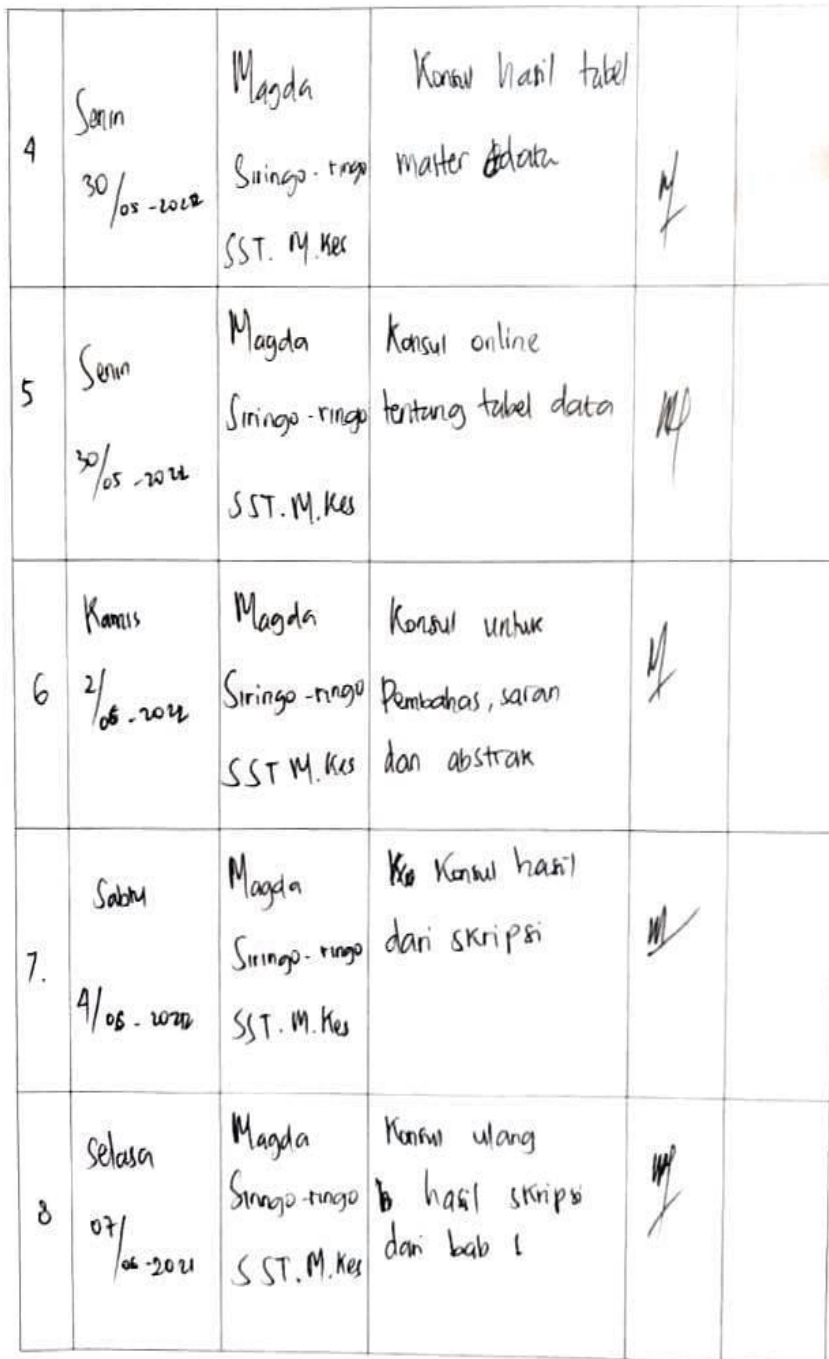 4
Senin
30/05-2022
Magda
Siringo-ringo
SST. M.Kes
Konsul hasil tabel
master data
5
Senin
30/05-2022
Magda
Siringo-ringo
SST.M.Kes
Konsul online
tentang tabel data
6
Kamis
2/06-2022
Magda
Siringo-ringo
SST M.Kes
Konsul untuk
Pembahas, saran
dan abstrak
7.
Sabtu
4/06-2022
Magda
Siringo-ringo
SST.M.Kes
Konsul hasil
dari skripsi
8
Selasa
07/06-2022
Magda
Siringo-ringo
SST.M.Kes
Konsul ulang
hasil skripsi
dari bab 1